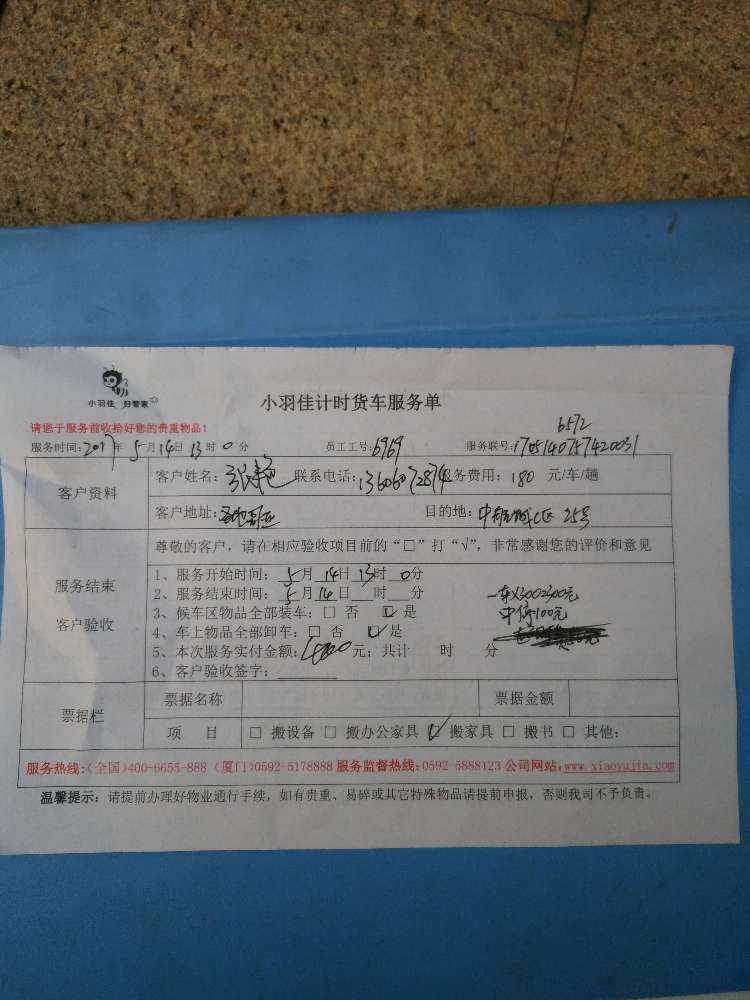 小羽佳 好管家
小羽佳计时货车服务单
请您于服务前收拾好您的贵重物品！
6572
服务时间：2017年 5月14日 13时 0分 员工工号：6969 服务联号：1705140757420031
客户资料
客户姓名：张 联系电话：13606072874 务费用：180 元/车/趟
客户地址： 目的地：中 25号
服务结束
客户验收
尊敬的客户，请在相应验收项目前的“□”打“√”，非常感谢您的评价和意见
1、服务开始时间：5月14日13时0分
2、服务结束时间：5月14日 时 分
一车
3、候车区物品全部装车：□ 否 ☑是
中停100元
4、车上物品全部卸车：□ 否 ☑是
5、本次服务实付金额： 元；共计 时 分
6、客户验收签字：
票据栏
票据名称 票据金额
项 目 □ 搬设备 □ 搬办公家具 ☑ 搬家具 □ 搬书 □ 其他：
服务热线：（全国）400-6655-888（厦门）0592-5178888 服务监督热线：0592-5888123 公司网站：www.xiaoyujia.com
温馨提示：请提前办理好物业通行手续，如有贵重、易碎或其它特殊物品请提前申报，否则我司不予负责。